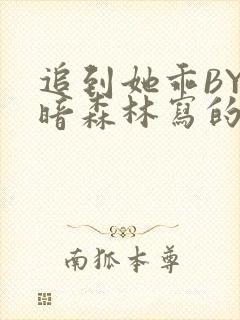 追到她乖BY
暗森林寫的
南狐本尊